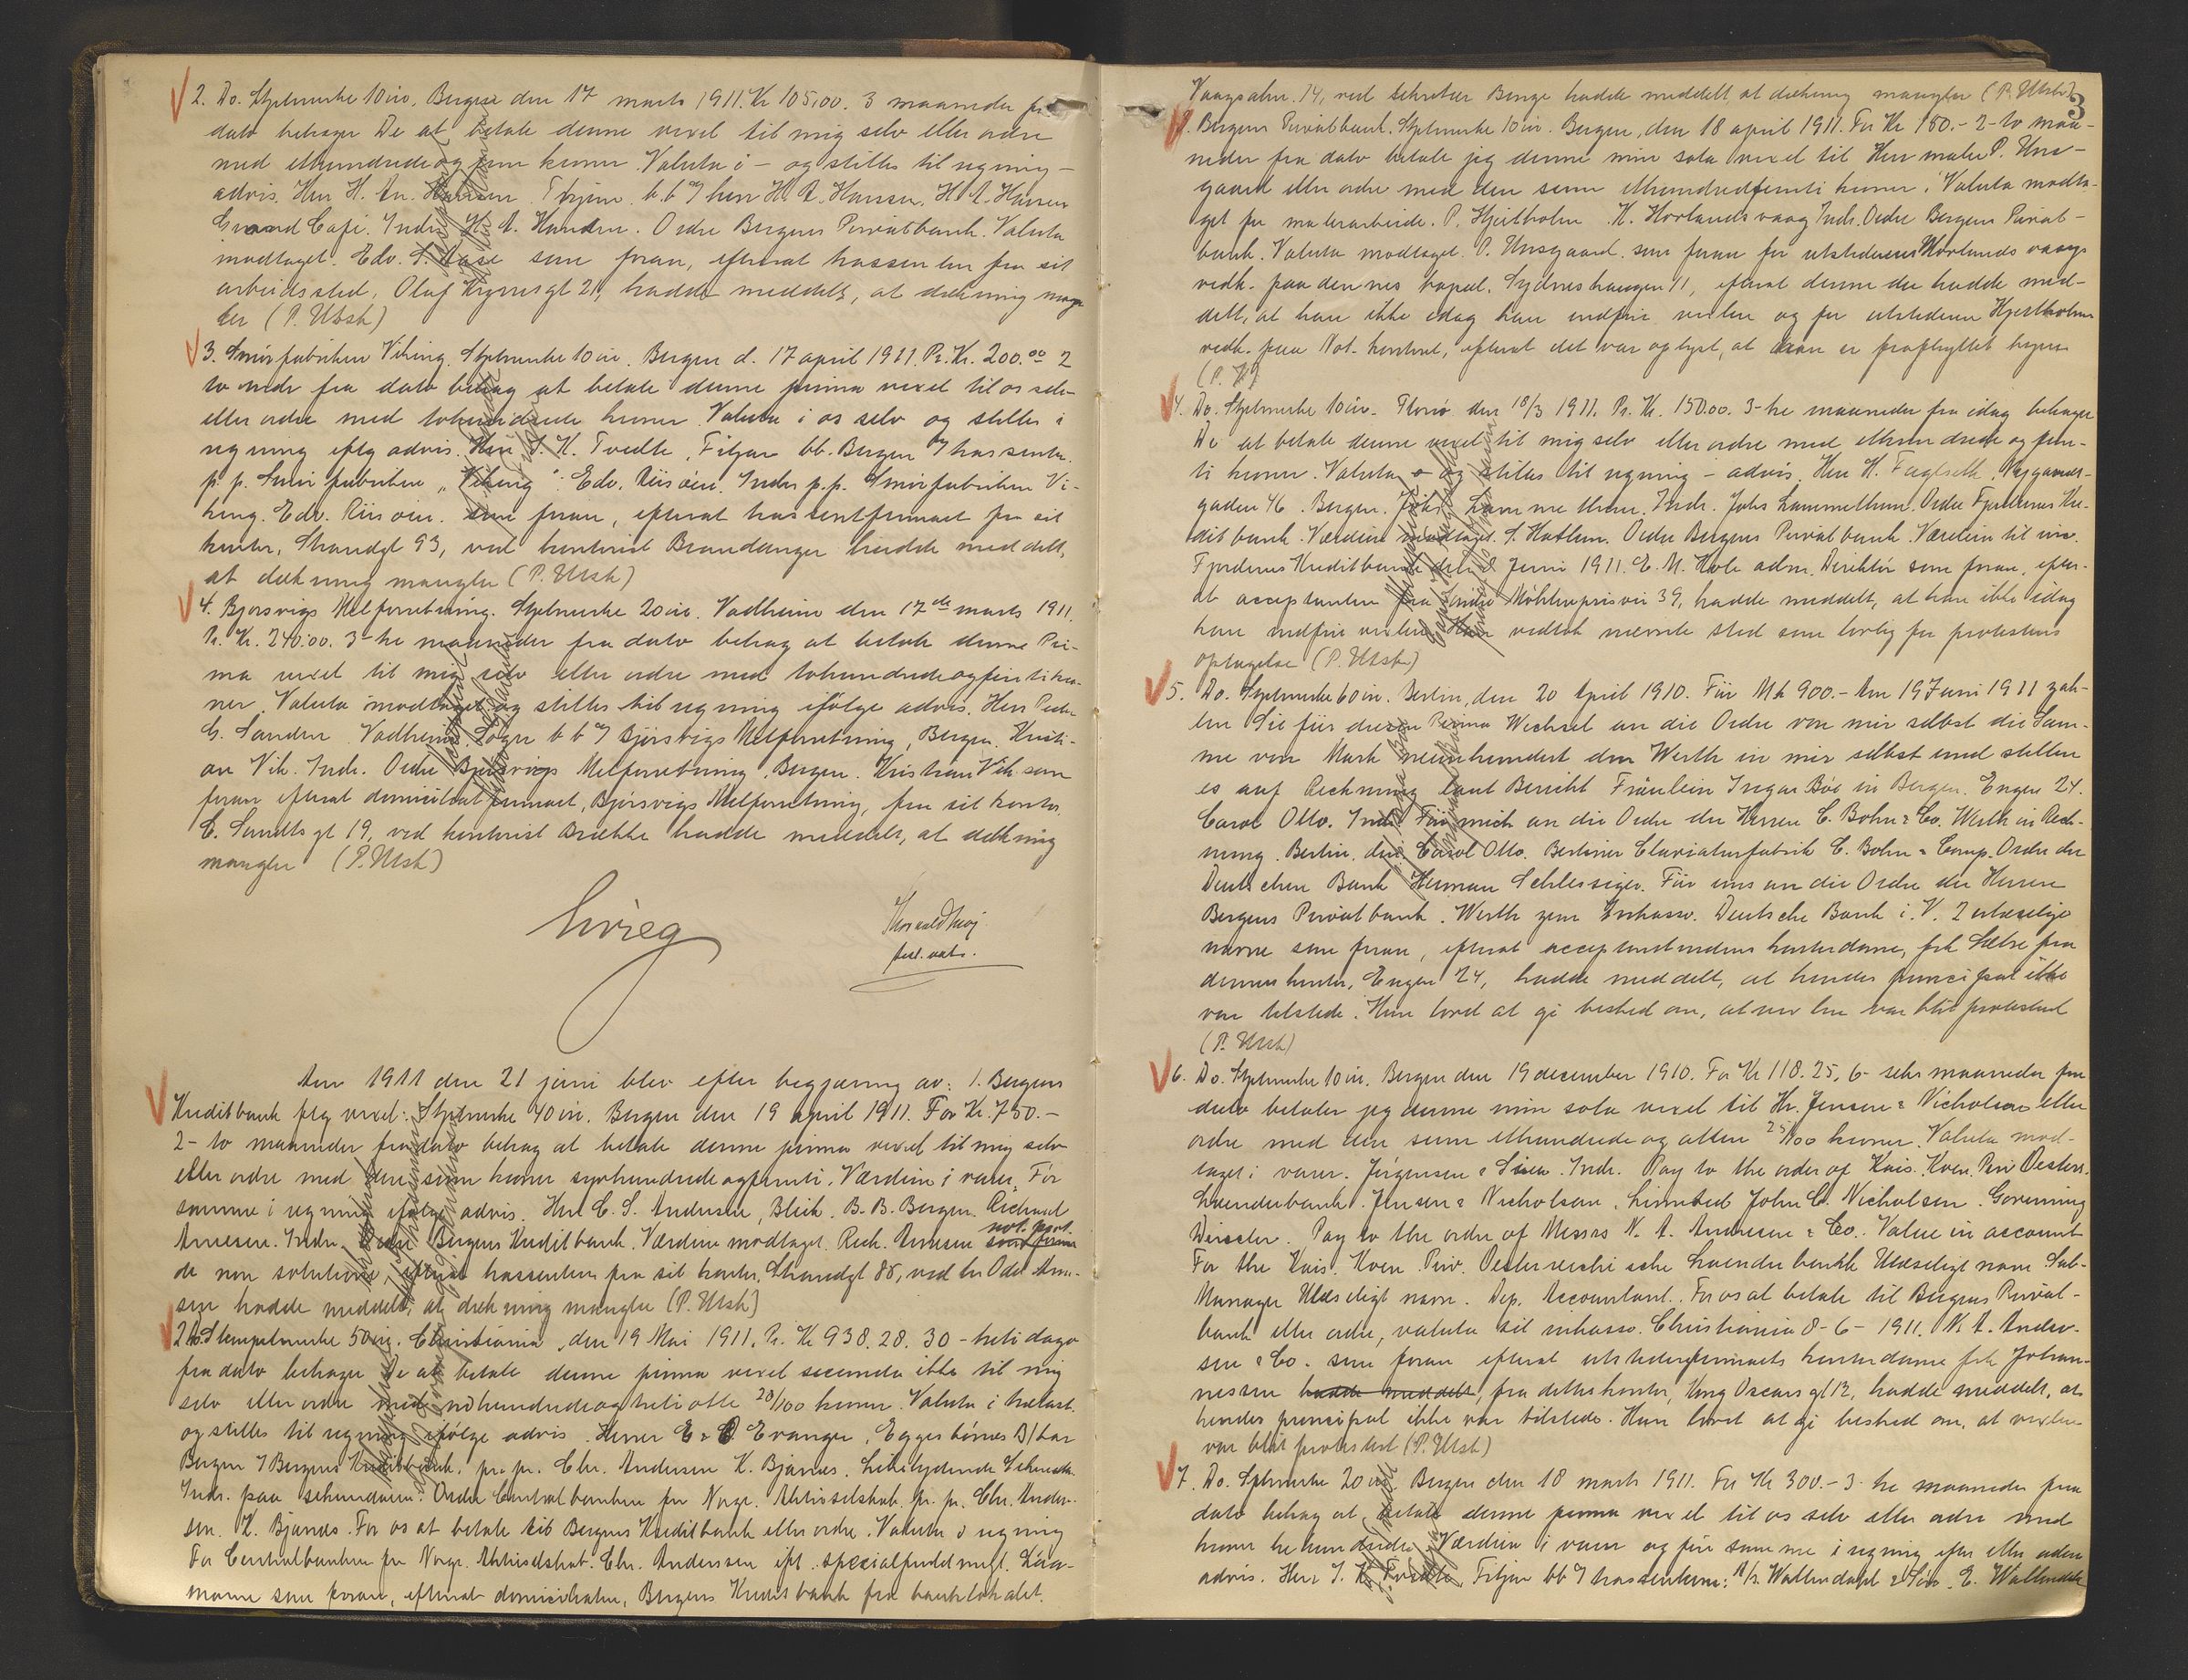 2. Do. Stplmerke 10 øre. Bergen den 17 marts 1911. Kr 105,00. 3 maaneder fra
dato behager De at betale denne vexel til mig selv eller ordre
med ethundrede og fem kroner. Valuta i – og stilles til regning –
advis. Herr H. An. Hansen. T bb og herr H. A. Hansen. H. A. Hansen
Grand Café. Indr. H. A. Hansen. Ordre Bergens Privatbank. Valuta
modtaget. Edv. S. Aase som foran, efterat trassenten fra sit
arbeidssted, Olaf Kyrresgt 21, hadde meddelt, at dækning mang-
ler (P. Utsk)
3. Smørfabriken Viking. Stplmerke 10 øre. Bergen d. 17 april 1911. Pr. Kr. 200.00 2
to mdr fra dato behag at betale denne prima vexel til os selv
eller ordre med tohundrede kroner. Valuta i os selv og stilles i
regning eftg advis. Herr J. K. Tvedte, Fitjar bb. Bergen trassenten.
p. p. Smørfabriken "Viking". Edv. Riisøen. Indr. p.p. Smørfabriken Vi-
king. Edv. Riisøen. som foran, efterat trassentfirmaet fra sit
kontor, Strandgt 93, ved kontorist Brandanger hadde meddelt,
at dækning mangler (P. Utsk)
4. Bjørsvigs Melforretning. Stplmerke 20 øre. Vadheim den 17de marts 1911.
Pr. Kr. 240.00. 3-tre maaneder fra dato behag at betale denne Pri-
ma vexel til mig selv eller ordre med tohundrede og firti kro-
ner. Valuta modtaget og stilles til regning ifølge advis. Herr Peder
G. Sanden Vadheim Sogn bb Bjørsvigs Melforretning, Bergen. Kristi-
an Vik. Indr. Ordre Bjørsvigs Melforretning, Bergen. Kristian Vik som
foran efterat domiciliatfirmaet, Bjørsvigs Melforretning, fra sit kontor,
C. Sundts gt 19, ved kontorist Brække hadde meddelt, at dækning
mangler (P. Utsk)
Grieg
Aar 1911 den 21 juni blev efter begjæring av: 1. Bergens
Kreditbank flg vexel: Stplmerke 40 øre. Bergen den 19 april 1911. For Kr. 750.–
2- to maaneder fra dato behag at betale denne prima vexel til mig selv
eller ordre med den sum kroner syvhundrede og femti. Værdien i varer. Før
samme i regning ifølge advis. Herr C. S. Andersen, Bleik. B. B. Bergen. Richard
Arnesen. Indr. Ordre Bergens Kreditbank. Værdien modtaget. Rich. Arnesen not. prot.
de non solutione, efterat trassenten fra sit kontor, Strandgt 85, ved hr Odd Arne-
sen hadde meddelt, at dækning mangler (P. Utsk)
2. Do. Stempelmerke 50 øre. Christiania, den 19 Mai 1911. Pr. Kr 938.28. 30 - treti dage
fra dato behager De at betale denne prima vexel secunda ikke til mig
selv eller ordre med nihundrede og treti otte 28/100 kroner. Valuta i trælast.
og stilles til regning ifølge advis. Herrer E. & O. Evanger, Eggesbønes B/har
Bergen Bergens Kreditbank. pr. pr. Chr. Andersen K. Bjånes. Likelydende Sekunda
Indr. paa sekundaen: Ordre Centralbanken for Norge. Aktieselskab. pr. pr. Chr. Ander-
sen. K. Bjånes. For os at betale til Bergens Kreditbank eller ordre. Valuta i regning
For Centralbanken for Norge. Aktieselskab. Chr. Andersen ifl. specialfuldmagt.
som foran, efterat domiciliaten, Bergens Kreditbank fra banklokalet.
3
Vaagsalm. 14, ved sekretær Benge hadde meddelt, at dækning mangler (P. Utsk)
3. Bergens Privatbank. Stplmerke 10 øre. Bergen, den 18 april 1911. For Kr 150.- 2- to maa-
neder fra dato betaler jeg denne min sola vexel til Herr maler P. Uns-
gaard eller ordre med den sum ethundredfemti kroner. Valuta modta-
get for malerarbeide. P. Hjertholm. K. Horlandsvaag Indr. Ordre Bergens Privat-
bank. Valuta modtaget. P. Unsgaard. som foran for utstederens Horlandsvaags
vedk. paa dennes bopæl. Sydneshaugen 11, efterat denne der hadde med-
delt, at han ikke idag kan indfri vexlen og for utstederen Hjertholms
vedk. paa Not. kontoret, efterat det var oplyst, at han er fraflyttet byen
(P. U)
4. Do. Stplmerke 10 øre. Florø den 18/3 1911. Pr. Kr. 150.00. 3-tre maaneder fra idag behager
De at betale denne vexel til mig selv eller ordre med ethundrede og fem-
ti kroner. Valuta – og stilles til regning – advis. Herr K. Fagerseth, Nygaards-
gaden 46. Bergen. Johs Lammethun. Indr. Johs Lammethun. Ordre Fjordenes Kre-
ditbank. Værdien modtaget. S. Hatlem. Ordre Bergens Privatbank. Værdien til inc.
Fjordenes Kreditbank den 8 Juni 1911. E. M. Hole adm. Direktør som foran, efter-
at acceptanten fra Møhlenprisvei 39, hadde meddelt, at han ikke idag
kan indfri vexlen. Han vedtok nævnte sted som lovlig for protestens
optagelse (P. Utsk)
5. Do. Stplmerke 60 øre. Berlin, den 20 April 1910. Für Mk 900.– Am 19 Juni 1911 zah-
len Sie für diesen Prima Wechsel an die Ordre von mir selbst die Sum-
me von Mark neunhundert den Werth in mir selbst und stellen
es auf Rechnung laut Bericht Fräulein Ingar Bøe in Bergen. Engen 24.
Carol Otto. Indr. Für mich an die Ordre der Herren C. Bohn & Co. Werth in Rech-
nung. Berlin, den. Carol Otto. Berliner Claviaturfabrik C. Bohn & Comp. Ordre der
Deutschen Bank Herman Schlesiger. Für uns an die Ordre der Herren
Bergens Privatbank. Werth zum Inkasso. Deutsche Bank i. V. 2 ulæselige
navne som foran, efterat acceptantindens kontordame, frk Sætre fra
dennes kontor, Engen 24, hadde meddelt, at hendes principal ikke
var tilstede. Hun lovet at gi besked om, at vexlen var blit protestert
(P. Utsk)
6. Do. Stplmerke 10 øre. Bergen den 19 december 1910. For Kr 118.25. 6- seks maaneder fra
dato betaler jeg denne min sola vexel til Hr. Jensen & Nicholson eller
ordre med den sum ethundrede og atten 25/100 kroner. Valuta mod-
taget i varer. Jørgensen & Indr. Pay to the order of Kais. Køn. Priv Oesterr.
Laenderbank. Jensen & Nicholson, Limited John C. Nicholson. Governing
Director. Pay to the order of Messrs N. A. Andresen & Co. Value in account
For the Kais. Køn. Priv. Oesterreichische Laenderbank Ulæseligt navn Sub-
Manager Ulæseligt navn. Dep. Accountant. For os at betale til Bergens Privat-
bank eller ordre, valuta til inkasso. Christiania 8-6-1911. N. A. Andre-
sen & Co. som foran efterat utstederfirmaets kontordame frk Johan-
nessen hadde meddelt, fra dettes kontor, Kong Oscars gt 12, hadde meddelt, at
hendes principal ikke var tilstede. Hun lovet at gi besked om, at vexlen
var blit protestert (P. Utsk)
7. Do. Stplmerke 20 øre Bergen den 18 marts 1911. For Kr 300.– 3- tre maaneder fra
dato behag at betale denne prima vexel til os selv eller ordre med
kroner trehundrede. Værdien i varer og før samme i regning efter eller uden
advis. Herr J. K. Tvedte, Fitjar bb trassenten: A/S. Wallendahl & Søn. E. Wallendahl